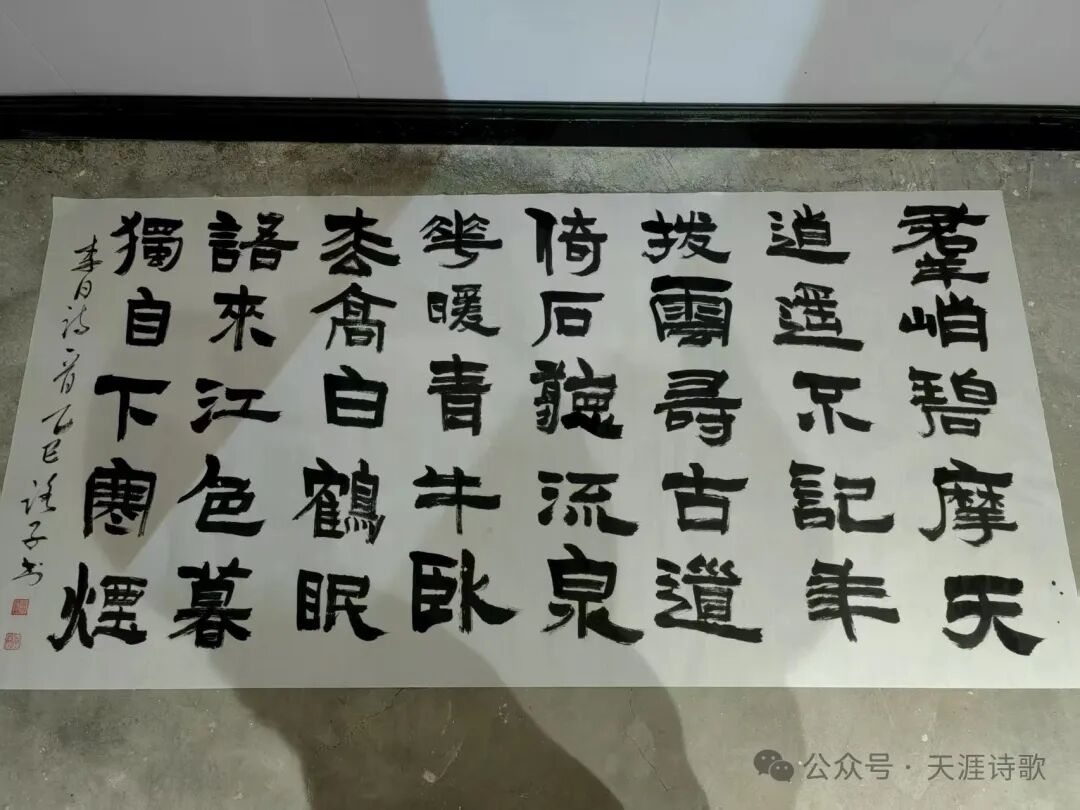 羣峭碧摩天
逍遥不記年
拨雲尋古道
倚石聽流泉
華暖青牛卧
枩高白鶴眠
語來江色暮
獨自下寒煙
李白诗一首乙巳子书
公众号·天涯诗歌